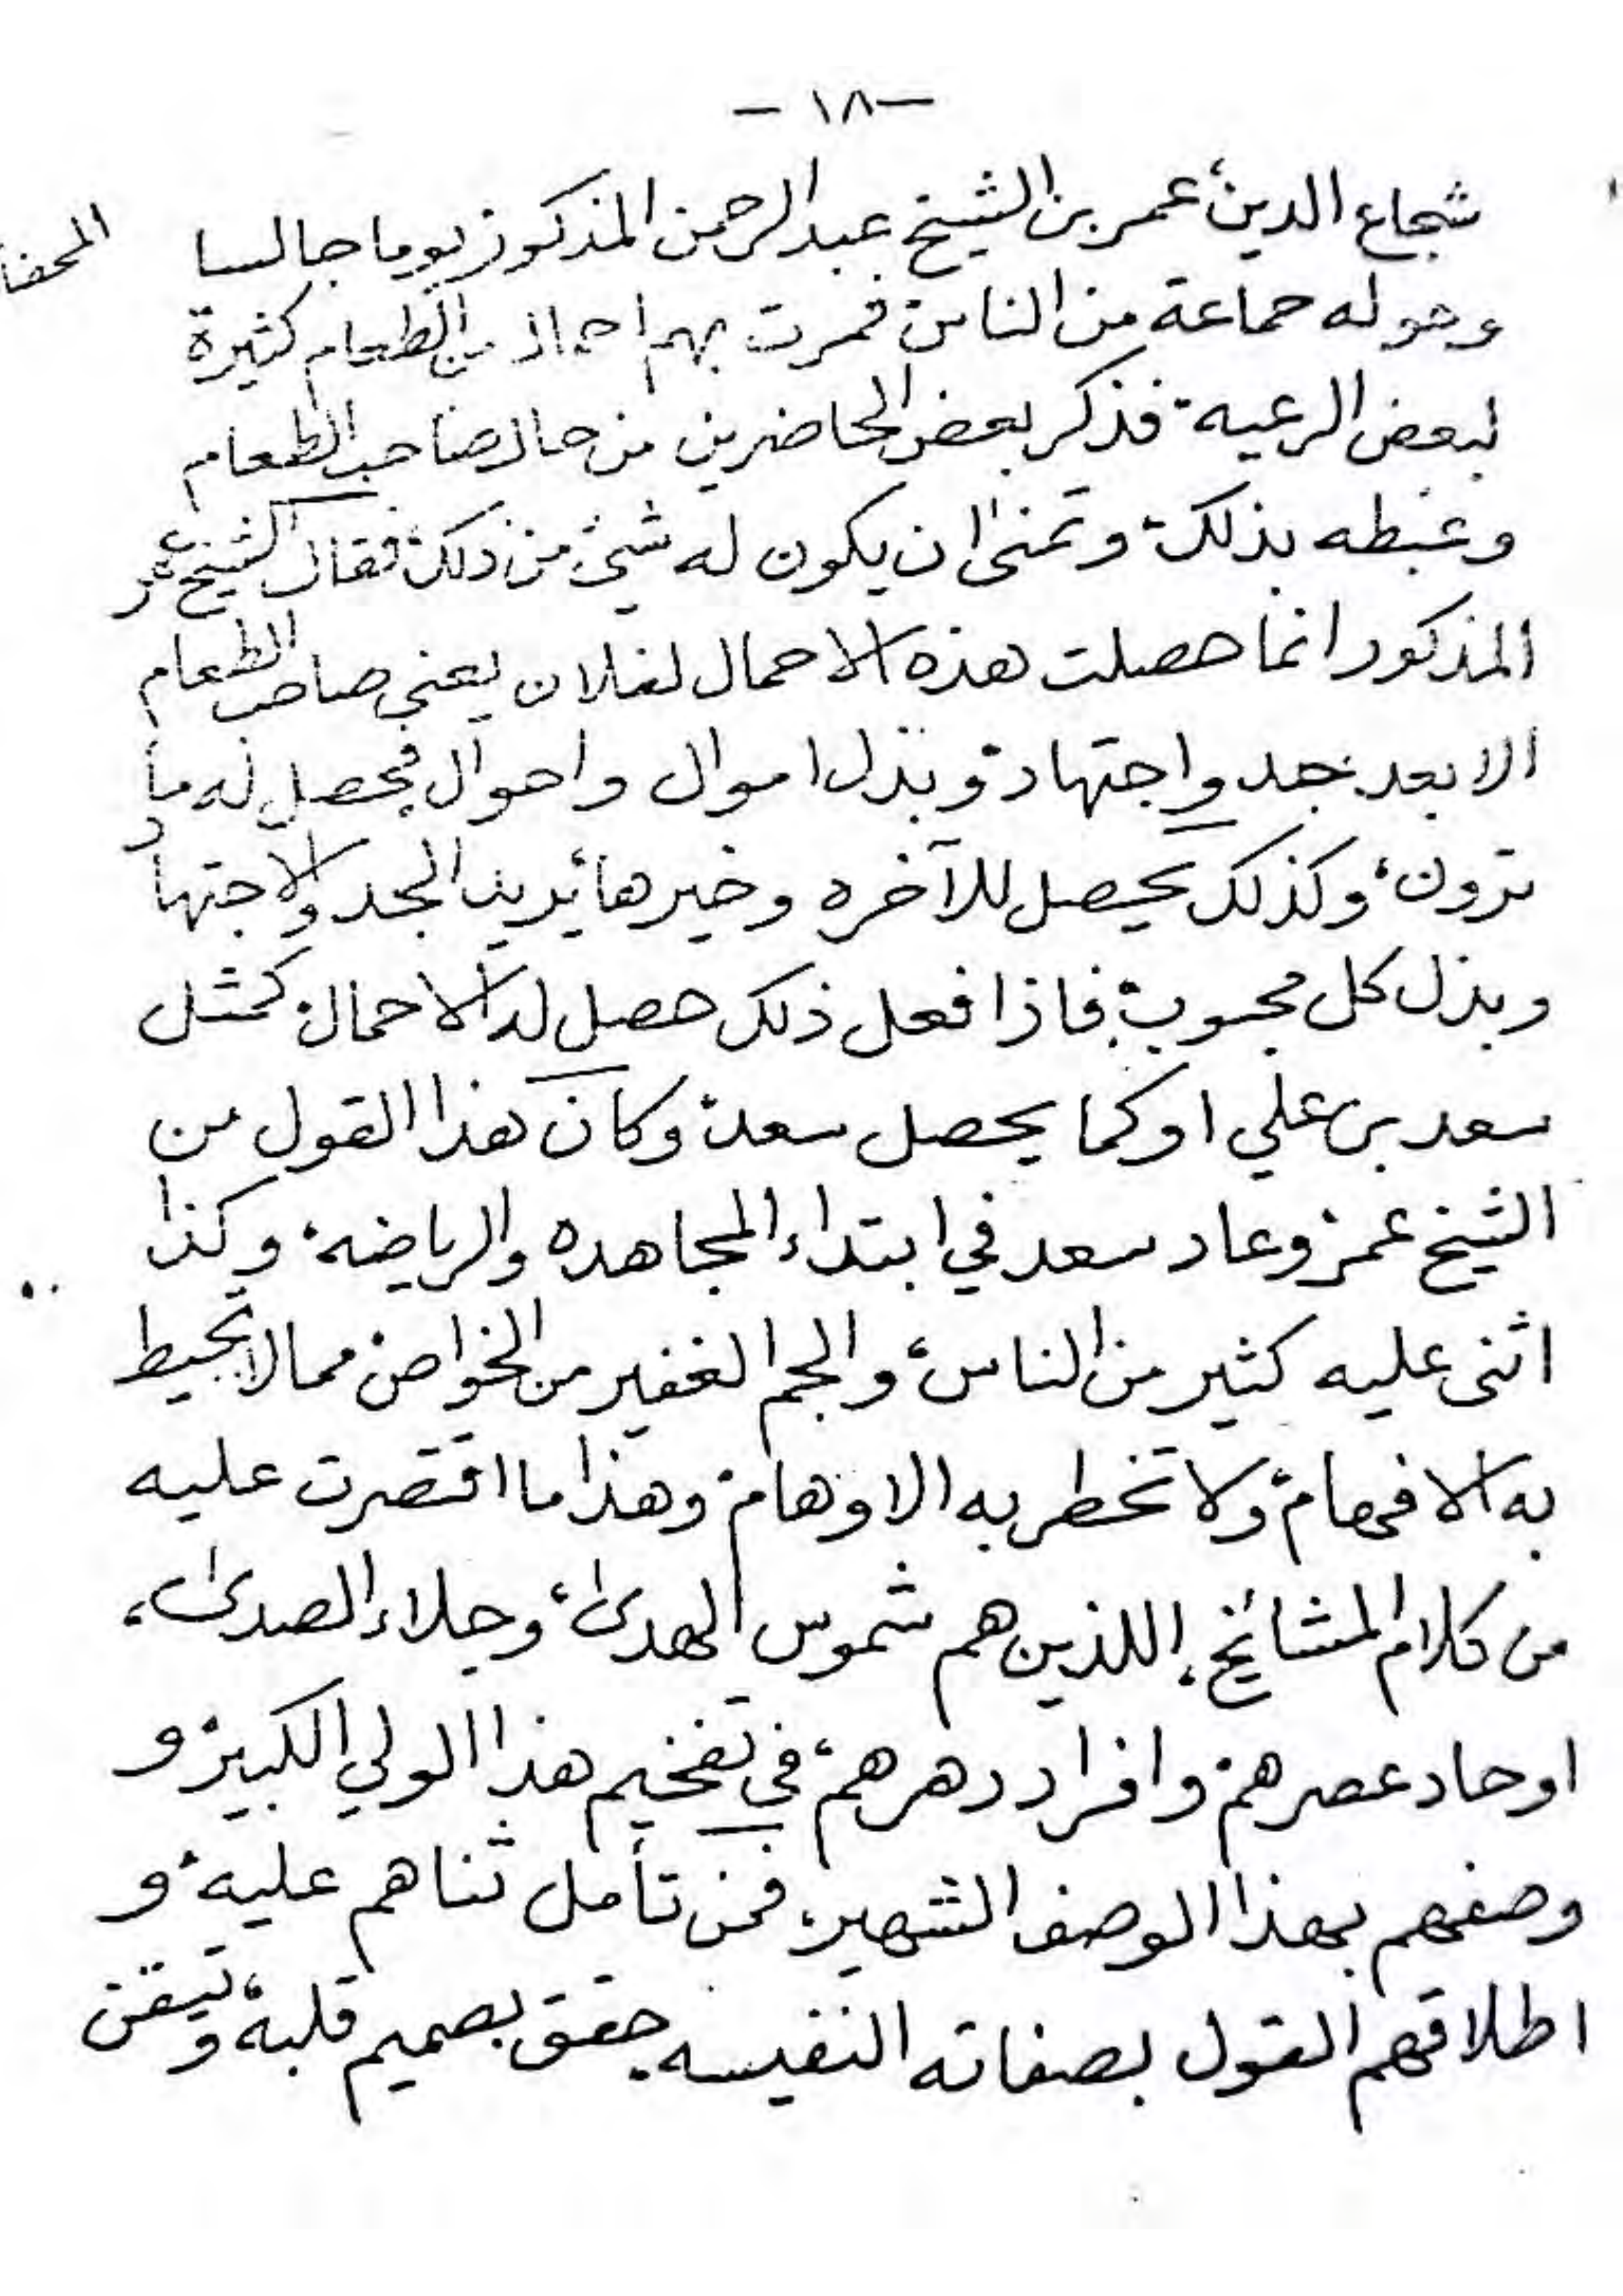 -١٨-
شجاع الدين، عمر بن الشيخ عبدالرحمن المذكور يوما جالسا
وحوله جماعة من الناس، فمرت بهم احمال من الطعام كثيرة
لبعض الرعيه، فذكر بعض الحاضرين من حال صاحب الطعام
وغبطه بذلك، وتمنى ان يكون له شيء من ذلك، فقال الشيخ عمر
المذكور انما حصلت هذه الاحمال لفلان يعني صاحب الطعام
الا بعد جد واجتهاد، وبذل اموال واحوال فحصل له ما
ترون، وكذلك يحصل للآخره وخيرها، يريد الجد والاجتهاد
وبذل كل محبوب، فاذا فعل ذلك حصل له الاحمال، كمثل
سعد بن علي او كما يحصل سعد، وكان هذا القول من
الشيخ عمر، وعاد سعد في ابتداء المجاهده والرياضه، وكذا
اثنى عليه كثير من الناس، والجم الغفير من الخواص، مما لا تحيط
به الافهام، ولا تخطر به الاوهام، وهذا ما اقتصرت عليه
من كلام المشائخ، اللذين هم شموس الهدى، وجلاء الصدى،
اوحاد عصرهم، وافراد دهرهم، في تفخيم هذا الولي الكبير، و
وصفهم بهذا الوصف الشهير، فمن تأمل ثناهم عليه، و
اطلاقهم القول بصفاته النفيسه، حقق بصميم قلبه، وتيقن